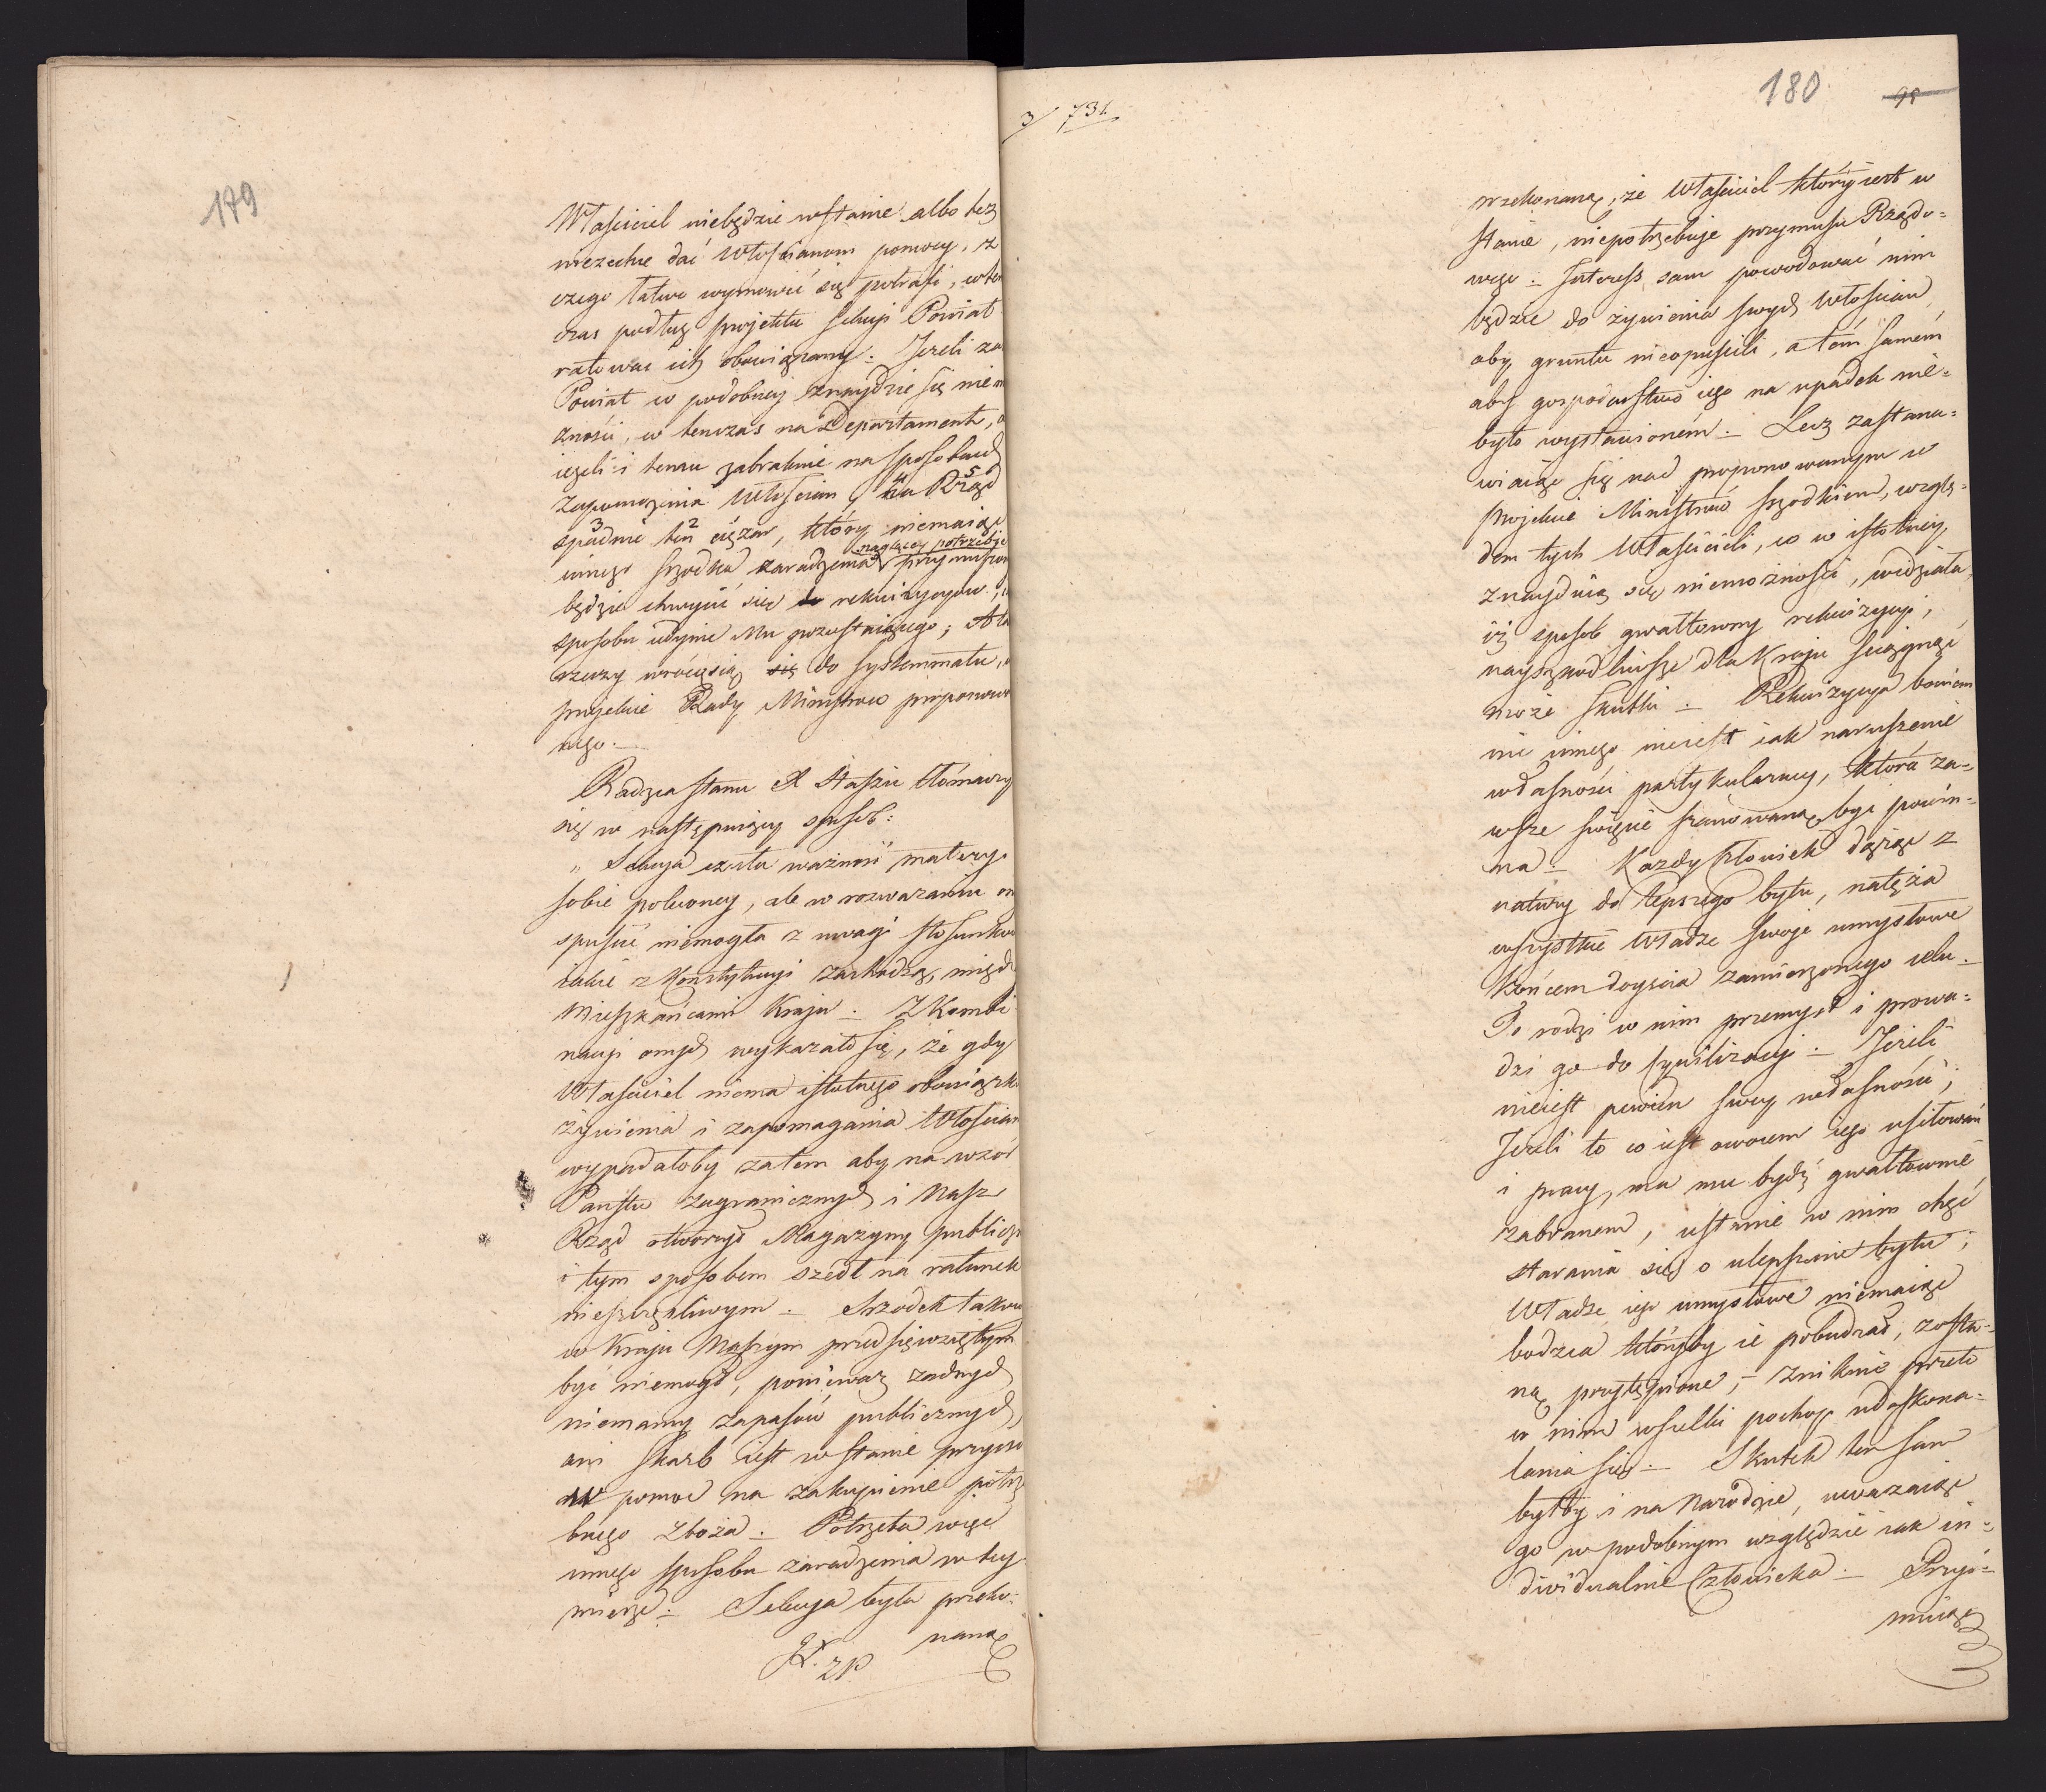 179
Właściciel niebędzie wstanie albo też
niezechce dać Włościanom pomocy, z
czego łatwo wymowić się potrafi, w ten
czas podług projektu Sekcyi Powiat
ratować ich obowiązany. Jeżeli zaś
Powiat w podobney znaydzie się niemo
żności, w tenczas na Departament, a
ieżeli i temu zabraknie na sposobach
zapomożenia Włościan, 4 na 5 Rząd
3 spadnie ten 2 ciężar, który niemaiąc
naglącey potrzebie
innego srzodka zaradzenia przymuszony
będzie chwycić się do rekwizycyów,
sposobu iedynie Mu pozostaiącego; A ta
rzeczy wrócą się do systemmatu, w
projekcie Rady Ministrow proponowa
nego.
Radzca Stanu X Staszic tłómaczy
się w następuiący sposób:
„ Sekcya czuła ważność materyi
sobie poleconey, ale w rozważaniu oney
spuścić niemogła z uwagi stosunków
iakie z Konstytucyi zachodzą, między
Mieszkańcami Kraju. Z Kombi
nacyi onych wykazało się, że gdy
Właściciel niema istotnego obowiązku
żywienia i zapomagania Włościan
wypadałoby zatem aby na wzór
Państw zagranicznych i Nasz
Rząd otworzył Magazyny publiczne
i tym sposobem szedł na ratunek
nieszczęśliwym. Srzodek takowy
w Kraju Naszym przedsięwziętym
być niemógł, ponieważ żadnych
niemamy zapasów publicznych,
ani Skarb iest w stanie przyiść
w pomoc na zakupienie potrze
bnego Zboża. Potrzeba więc
innego sposobu zaradzenia w tey
mierze. Sekcya była przeko-
naną
180
95
3/ 731.
przekonaną, że Właściciel który iest w
stanie, niepotrzebuje przymusu Rządo-
wego. Interess sam powodować nim
będzie do żywienia swych Włościan,
aby gruntu nieopuścili, a tém samém
aby gospodarstwo iego na upadek nie-
było wystawioném. Lecz zastana-
wiaiąc się nad proponowanym w
Projekcie Ministrów srzodkiem, wzglę-
dem tych Właścicieli, co w istotney
znayduią się niemożności, widziała,
iż sposób gwałtowny rekwizycyi,
nayszkodliwsze dla Kraju sciągnąć
może skutki. Rekwizycya bowiem
nic innego nieiest iak naruszenie
własności partykularney, która za-
wsze święcie szanowaną być powin-
na. Każdy Człowiek dążąc z
natury do lepszego bytu, natęża
wszystkie Władze swoje umysłowe
końcem doyścia zamierzonego celu.
To rodzi w nim przemysł i prowa-
dzi go do Cywilizacyi. Jeżeli
nieiest pewien swey własności,
Jeżeli to co iest owocem iego usiłowań
i pracy, ma mu bydź gwałtownie
zabranem, ustanie w nim chęć
starania się o ulepszenie bytu;
Władze iego umysłowe niemaiąc
bodzca któryby ie pobudzał, zosta-
ną przytępione, znikнie przeto
w nim wszelki pochop udoskona-
lania się. Skutek ten sam
byłby i na Narodzie, uważaiąc
go w podobnym względzie iak in-
dividualnie Człowieka. Przyi-
muiąc